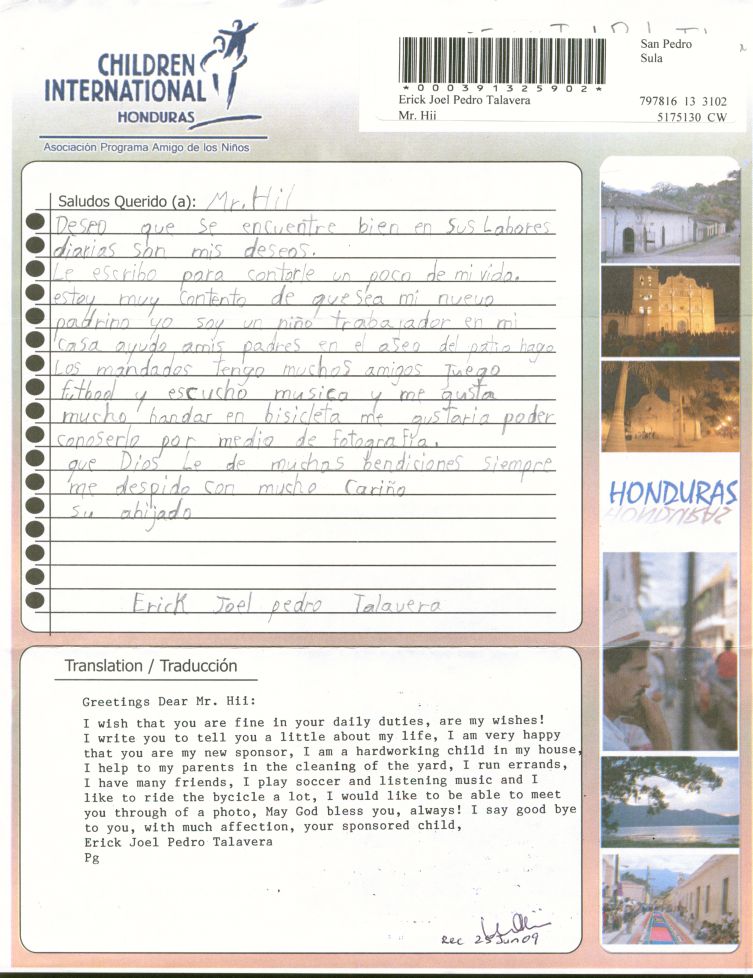 CHILDREN
INTERNATIONAL
HONDURAS
Asociación Programa Amigo de los Niños
*000391325902*
San Pedro
Sula
Erick Joel Pedro Talavera
Mr. Hii
797816 13 3102
5175130 CW
Saludos Querido (a): Mr. Hil
Deseo que se encuentre bien en sus Labores
diarias son mis deseos.
Le escribo para contarle un poco de mi vida.
estoy muy contento de que sea mi nuevo
padrino yo soy un niño trabajador en mi
casa ayudo amis padres en el aseo del patio hago
Los mandados tengo muchos amigos juego
futbool y escucho musica y me gusta
mucho handar en bisicleta me gustaria poder
conoserlo por medio de fotografia.
que Dios Le de muchas bendiciones siempre
me despido con mucho Cariño
su ahijado
Erick Joel pedro Talavera
HONDURAS
Translation / Traducción
Greetings Dear Mr. Hii:
I wish that you are fine in your daily duties, are my wishes!
I write you to tell you a little about my life, I am very happy
that you are my new sponsor, I am a hardworking child in my house,
I help to my parents in the cleaning of the yard, I run errands,
I have many friends, I play soccer and listening music and I
like to ride the bycicle a lot, I would like to be able to meet
you through of a photo, May God bless you, always! I say good bye
to you, with much affection, your sponsored child,
Erick Joel Pedro Talavera
Pg
Rec 25 Jun 09